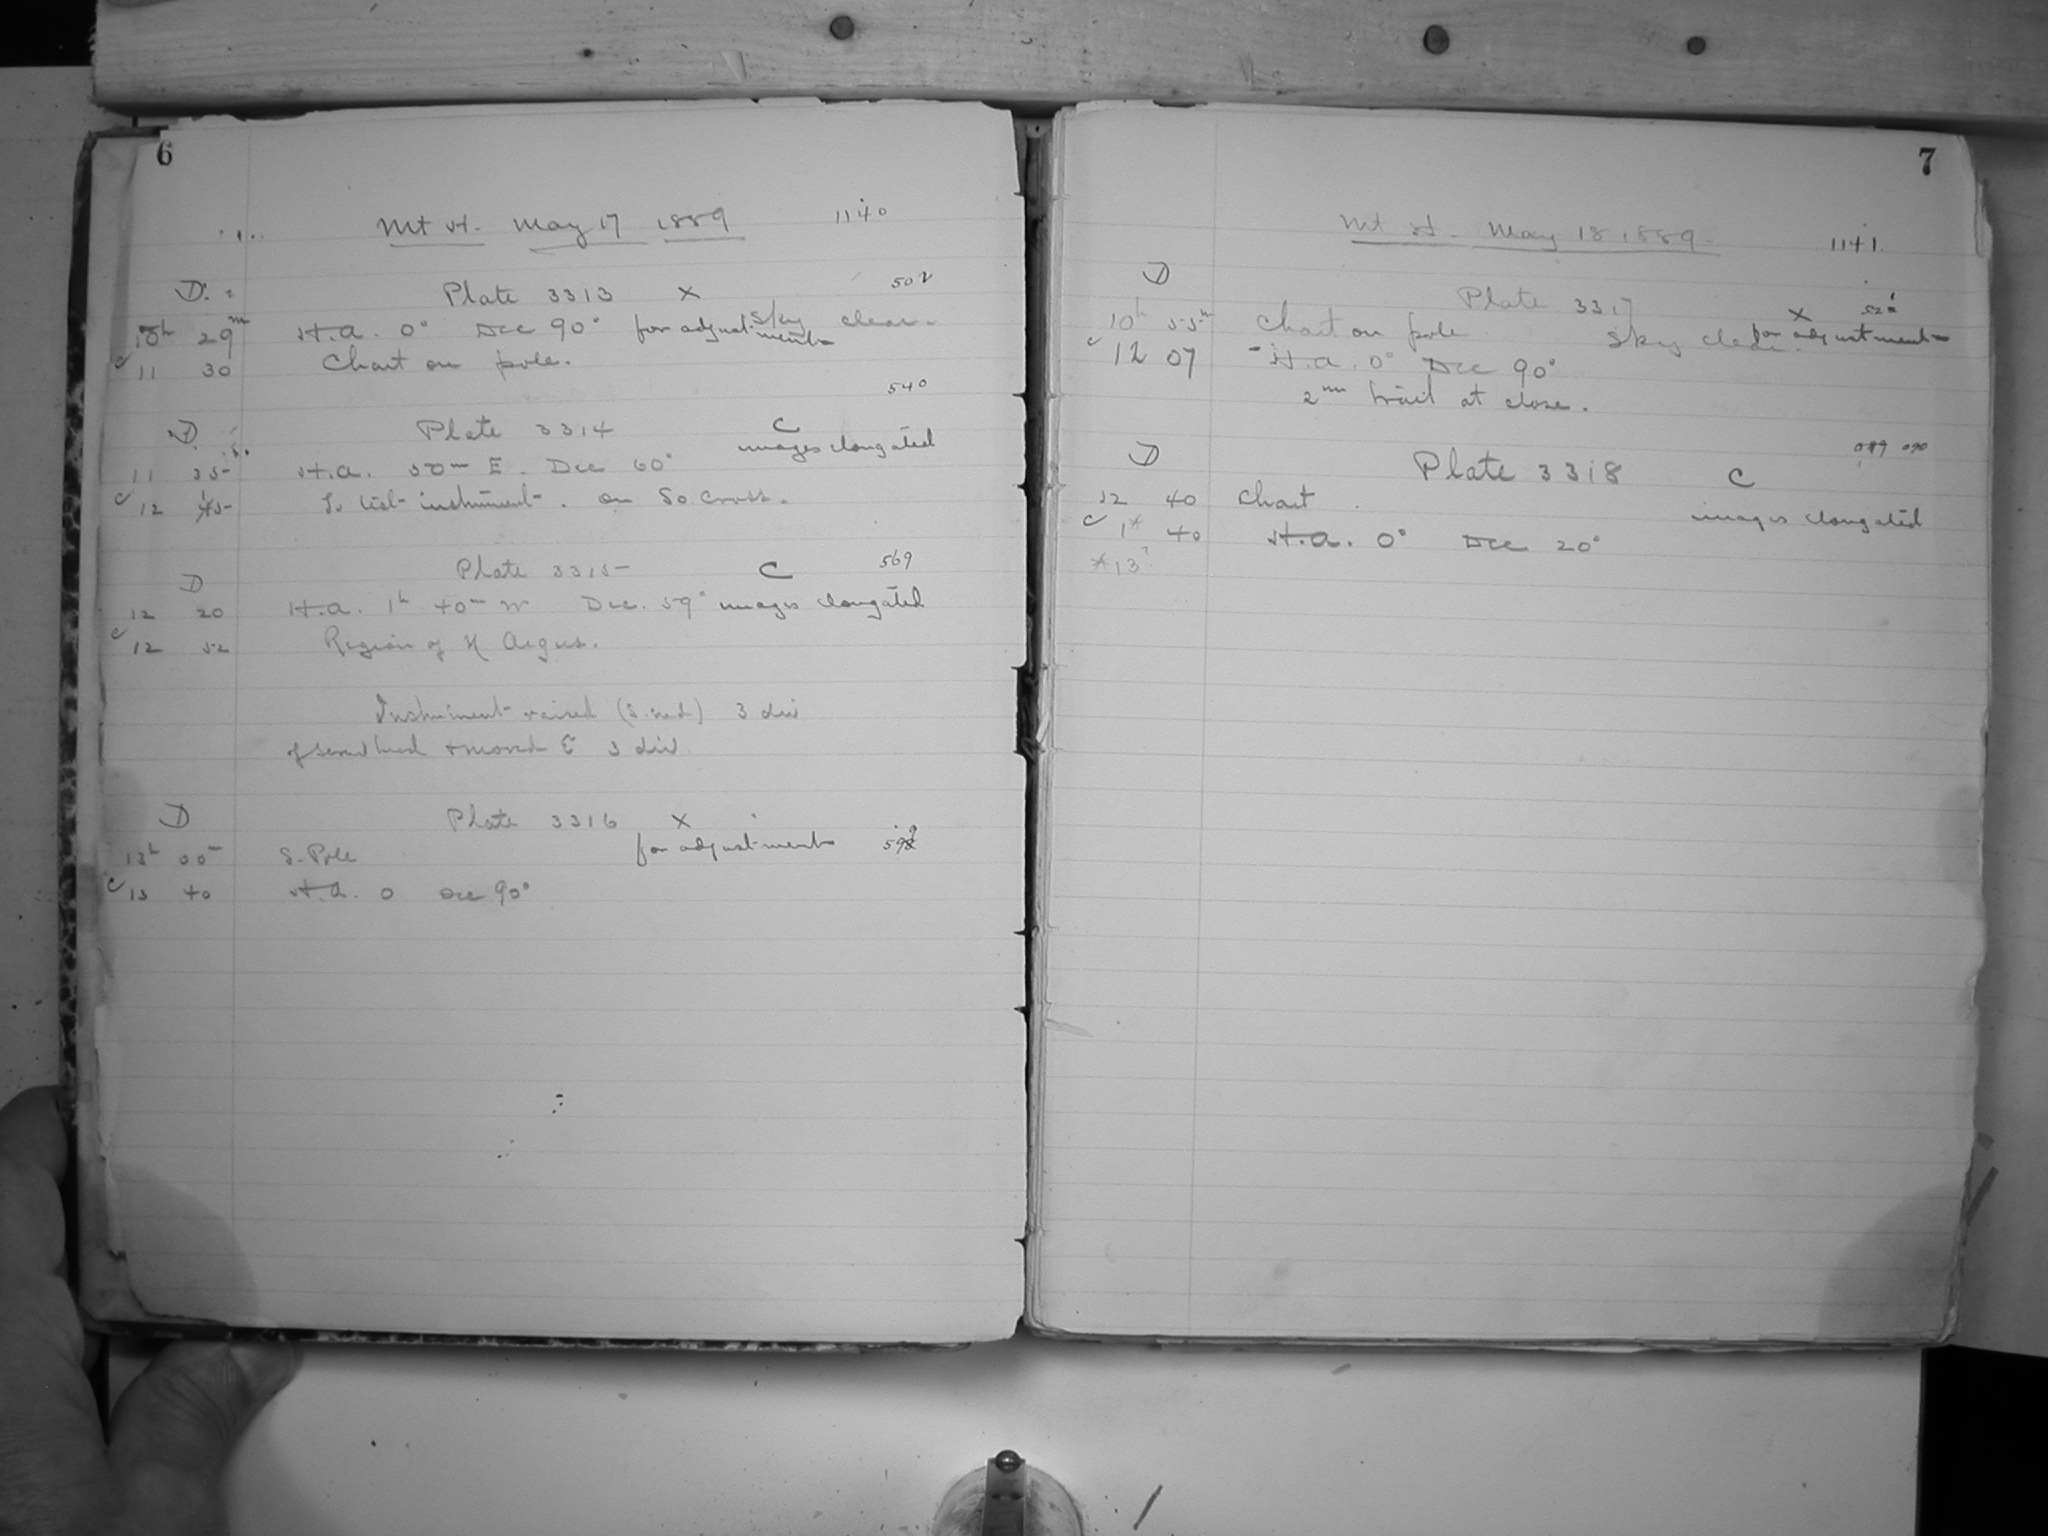 6
Mt H. May 17 1889 1140
D. Plate 3313 X 502
10h 29m H.A. 0° Dec 90° for adjustments Sky clear.
c 11 30 Chart on pole.
540
D Plate 3314 C
images elongated
11 35 H.A. 50m E. Dec 60°
c 12 15 To test instrument. on So. Cross.
569
D Plate 3315 C
12 20 H.A. 1h 40m W Dec. 59° images elongated
c 12 52 Region of η Argus.
Instrument raised (S. end) 3 div
of screw head & moved E 3 div.
D Plate 3316 X
13h 00m S. Pole for adjustment 599
c 13 40 H.A. 0 Dec 90°
7
Mt H. May 18 1889 1141
D Plate 3317 X
10h 55m Chart on pole Sky clear. for adjustment
c 12 07 H.A. 0° Dec 90°
2m trail at close.
D 089 090
Plate 3318 C
12 40 Chart images elongated
c 1* 40 H.A. 0° Dec 20°
*13?